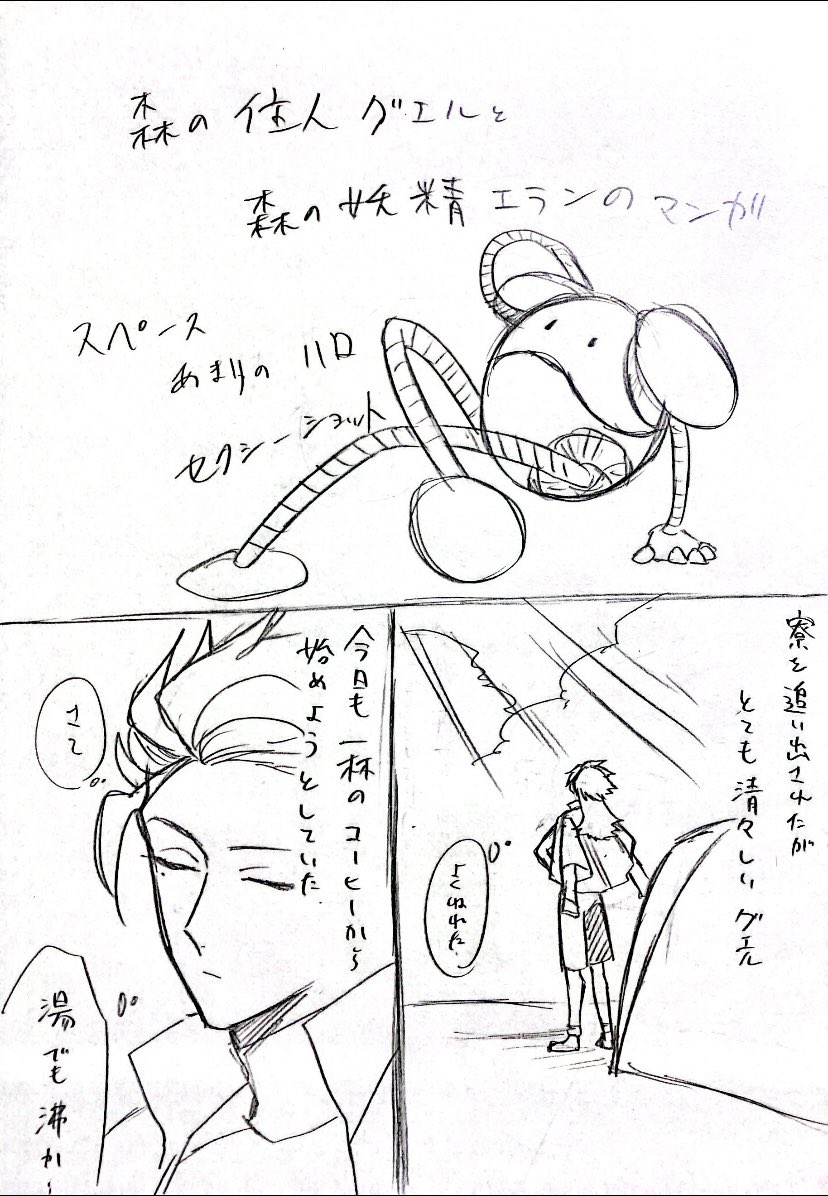 森の住人グエルと
森の妖精エランのマンガ
スペース
あまりのハロ
セクシーショット
寮を追い出されたが
とても清々しいグエル
よくねれた。
今日も一杯のコーヒーから
始めようとしていた
さて
湯でも沸か